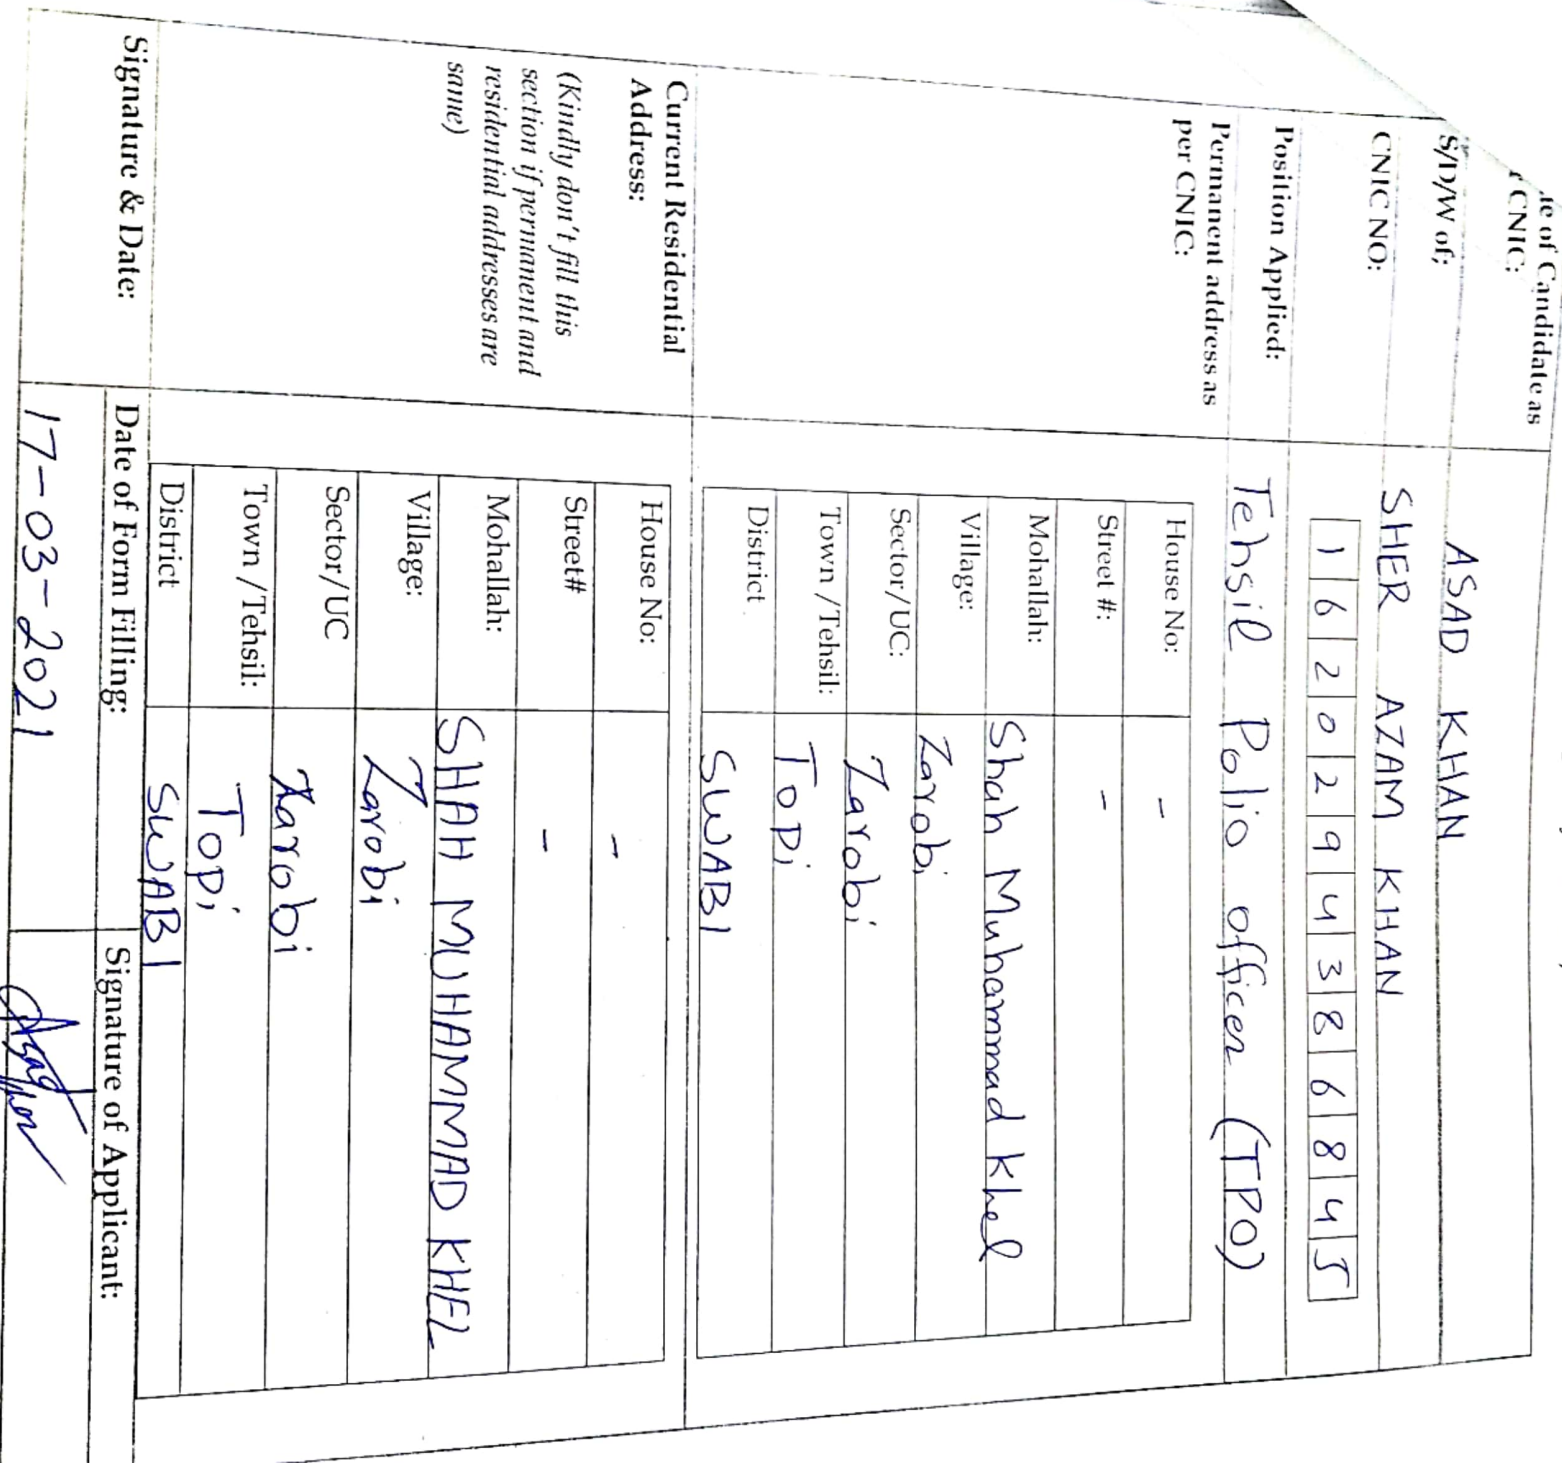 e of Candidate as ASAD KHAN
CNIC:
S/D/W of; SHER AZAM KHAN
CNIC NO: 1 6 2 0 2 9 4 3 8 6 8 4 5
Position Applied: Tehsil Polio officer (TPO)
Permanent address as
per CNIC:
House No: -
Street #: -
Mohallah: Shah Muhammad Khel
Village: Zarobi
Sector/UC: Zarobi
Town /Tehsil: Topi
District SWABI
Current Residential
Address:
(Kindly don't fill this
section if permanent and
residential addresses are
same)
House No: -
Street# -
Mohallah: SHAH MUHAMMAD KHEL
Village: Zarobi
Sector/UC Zarobi
Town /Tehsil: Topi
District SWABI
Signature & Date:
Date of Form Filling: Signature of Applicant:
17-03-2021